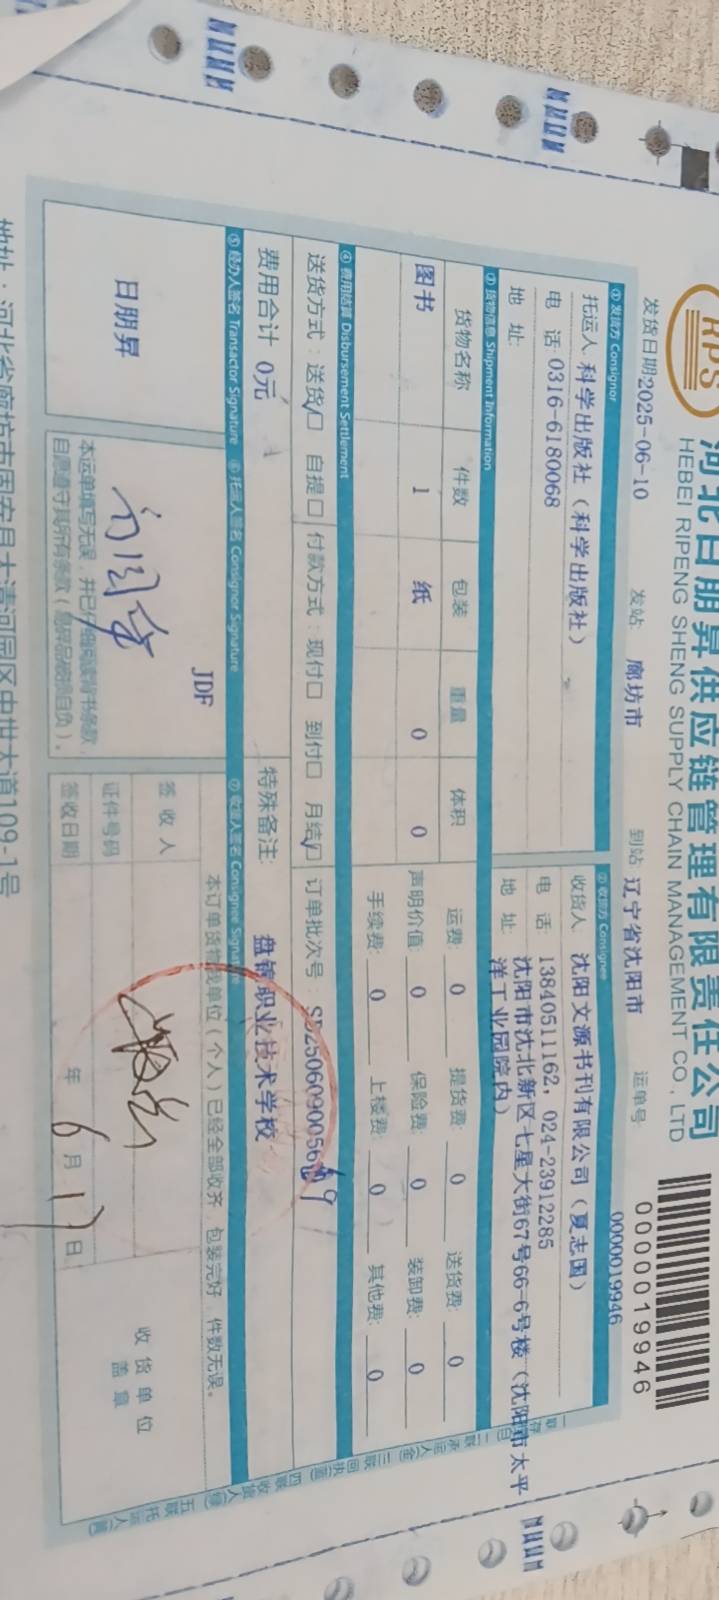 RPS
河北日朋昇供应链管理有限责任公司
HEBEI RIPENG SHENG SUPPLY CHAIN MANAGEMENT CO., LTD
0000019946
发货日期:2025-06-10 发站: 廊坊市 到站 辽宁省沈阳市 运单号 0000019946
① 发货方 Consignor
② 收货方 Consignee
托运人 科学出版社（科学出版社）
收货人 沈阳文源书刊有限公司（夏志国）
电 话: 0316-6180068
电 话: 13840511162, 024-23912285
地 址:
地 址: 沈阳市沈北新区七星大街67号66-6号楼（沈阳市太平
洋工业园院内）
③ 货物信息 Shipment Information
货物名称 件数 包装 重量 体积
运费: 0 提货费: 0 送货费: 0
图书 1 纸 0 0
声明价值: 0 保险费: 0 装卸费: 0
手续费: 0 上楼费: 0 其他费: 0
④ 费用结算 Disbursement Settlement
送货方式: 送货☑ 自提□ 付款方式: 现付□ 到付□ 月结☑ 订单批次号:
费用合计 0元 特殊备注: 盘锦职业技术学校
⑤ 经办人签名 Transactor Signature ⑥ 托运人签名 Consignor Signature ⑦ 收货人签名 Consignee Signature
日朋昇
JDF
本运单填写无误，并已
自愿遵守其所有条款
本订单货物我单位（个人）已经全部收齐，包装完好，件数无误。
签收人
证件号码
签收日期 年 6 月 17 日
收货单位
盖章
地址：河北省廊坊市固安县大清河园区中世大道109-1号